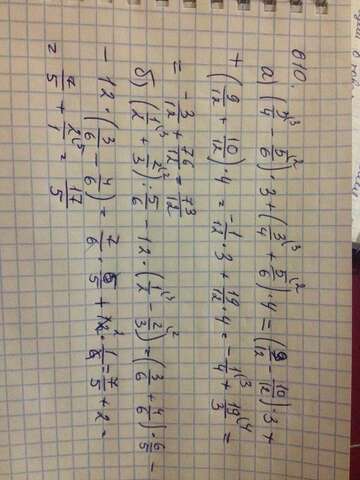 610.
а) (3/4 - 5/6) · 3 + (3/4 + 5/6) · 4 = (9/12 - 10/12) · 3 +
+ (9/12 + 10/12) · 4 = -1/12 · 3 + 19/12 · 4 = -1/4 + 19/3 =
= -3/12 + 76/12 = 73/12
б) (1/2 + 2/3) : 5/6 - 12 · (1/2 - 2/3) = (3/6 + 4/6) · 6/5 -
- 12 · (3/6 - 4/6) = 7/6 · 6/5 + 12 · 1/6 = 7/5 + 2 =
= 7/5 + 2/1 = 17/5